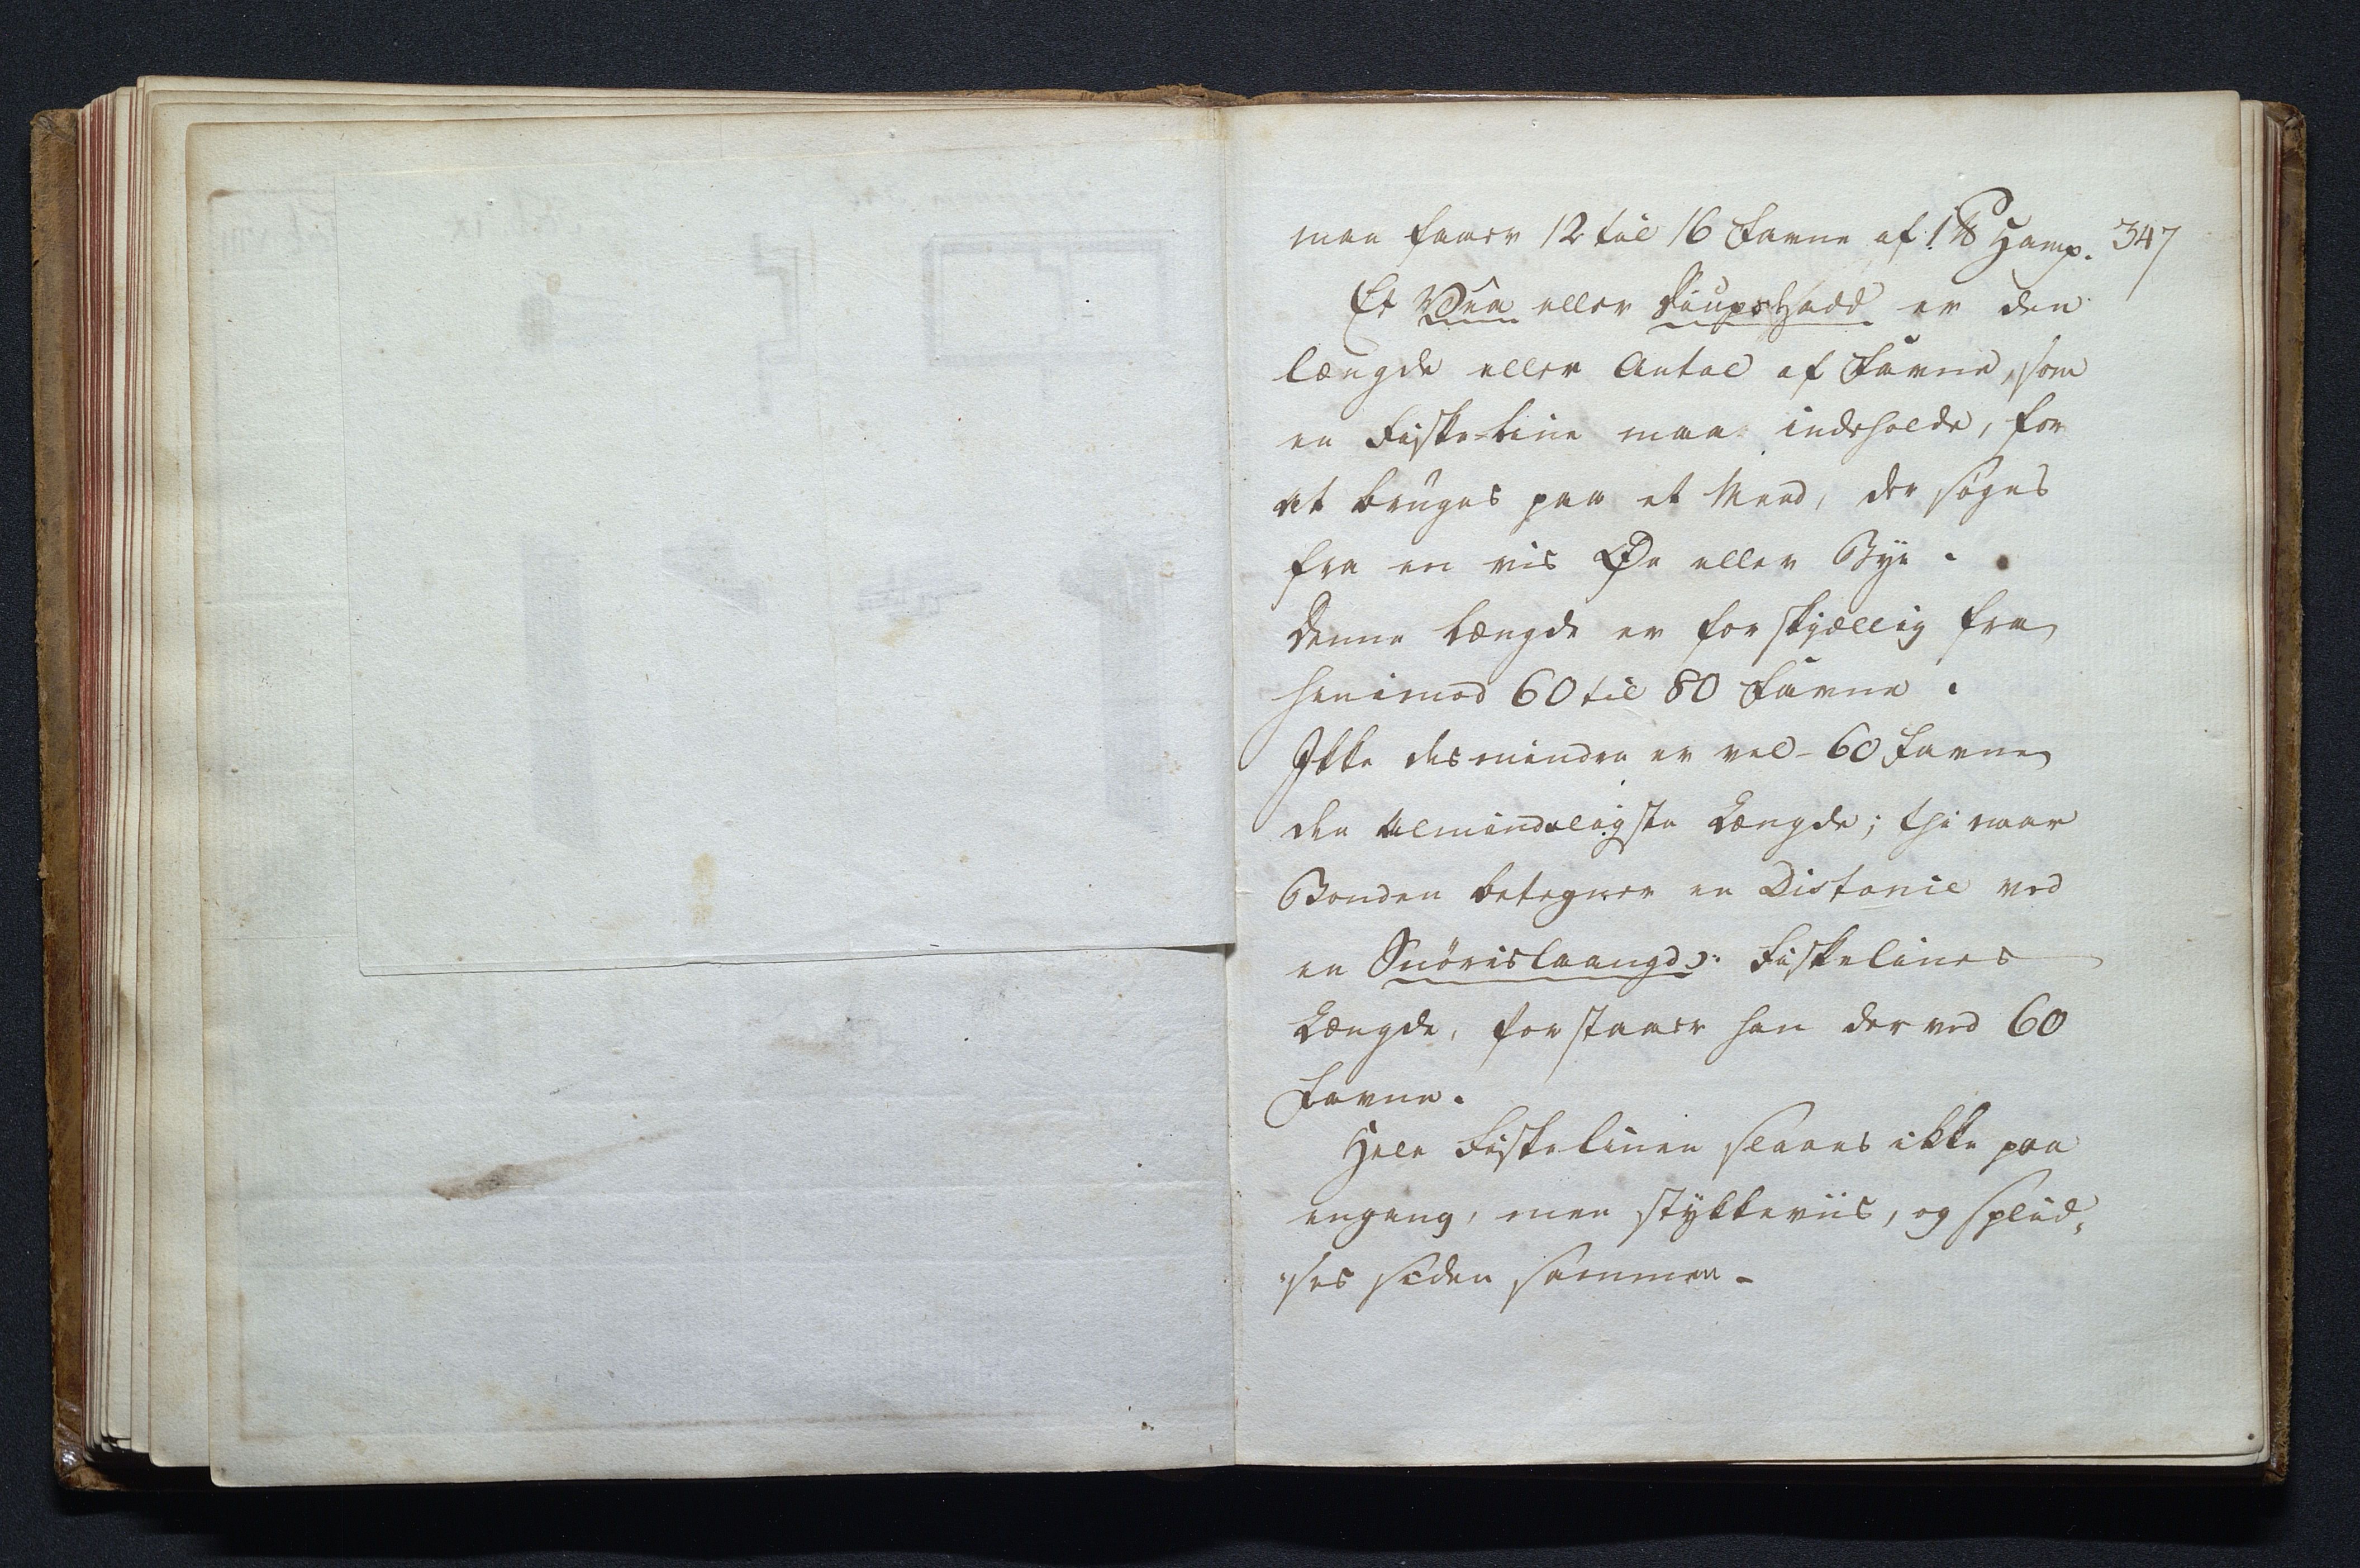 maa faaer 12 til 16 Favne af 1 ℔ Hamp. 347
Et Vea eller Diupshadd er den
længde eller Antal af Favne, som
en Fiske-line maa indeholde, for
at bruges paa et Meed, der søges
fra en vis Øe eller Bye.
Denne længde er forskjællig fra
henimod 60 til 80 Favne.
Ikke desmindre er vel 60 Favne
den Almindeligste Længde; thi naar
Bonden betegner en Distance ved
en Snørislaangd ɔ: Fiskelines
Længde, forstaaer han derved 60
Favne.
Hele Fiskelinen slaaes ikke paa
engang, men stykkeviis, og splid„
„ses siden sammen.